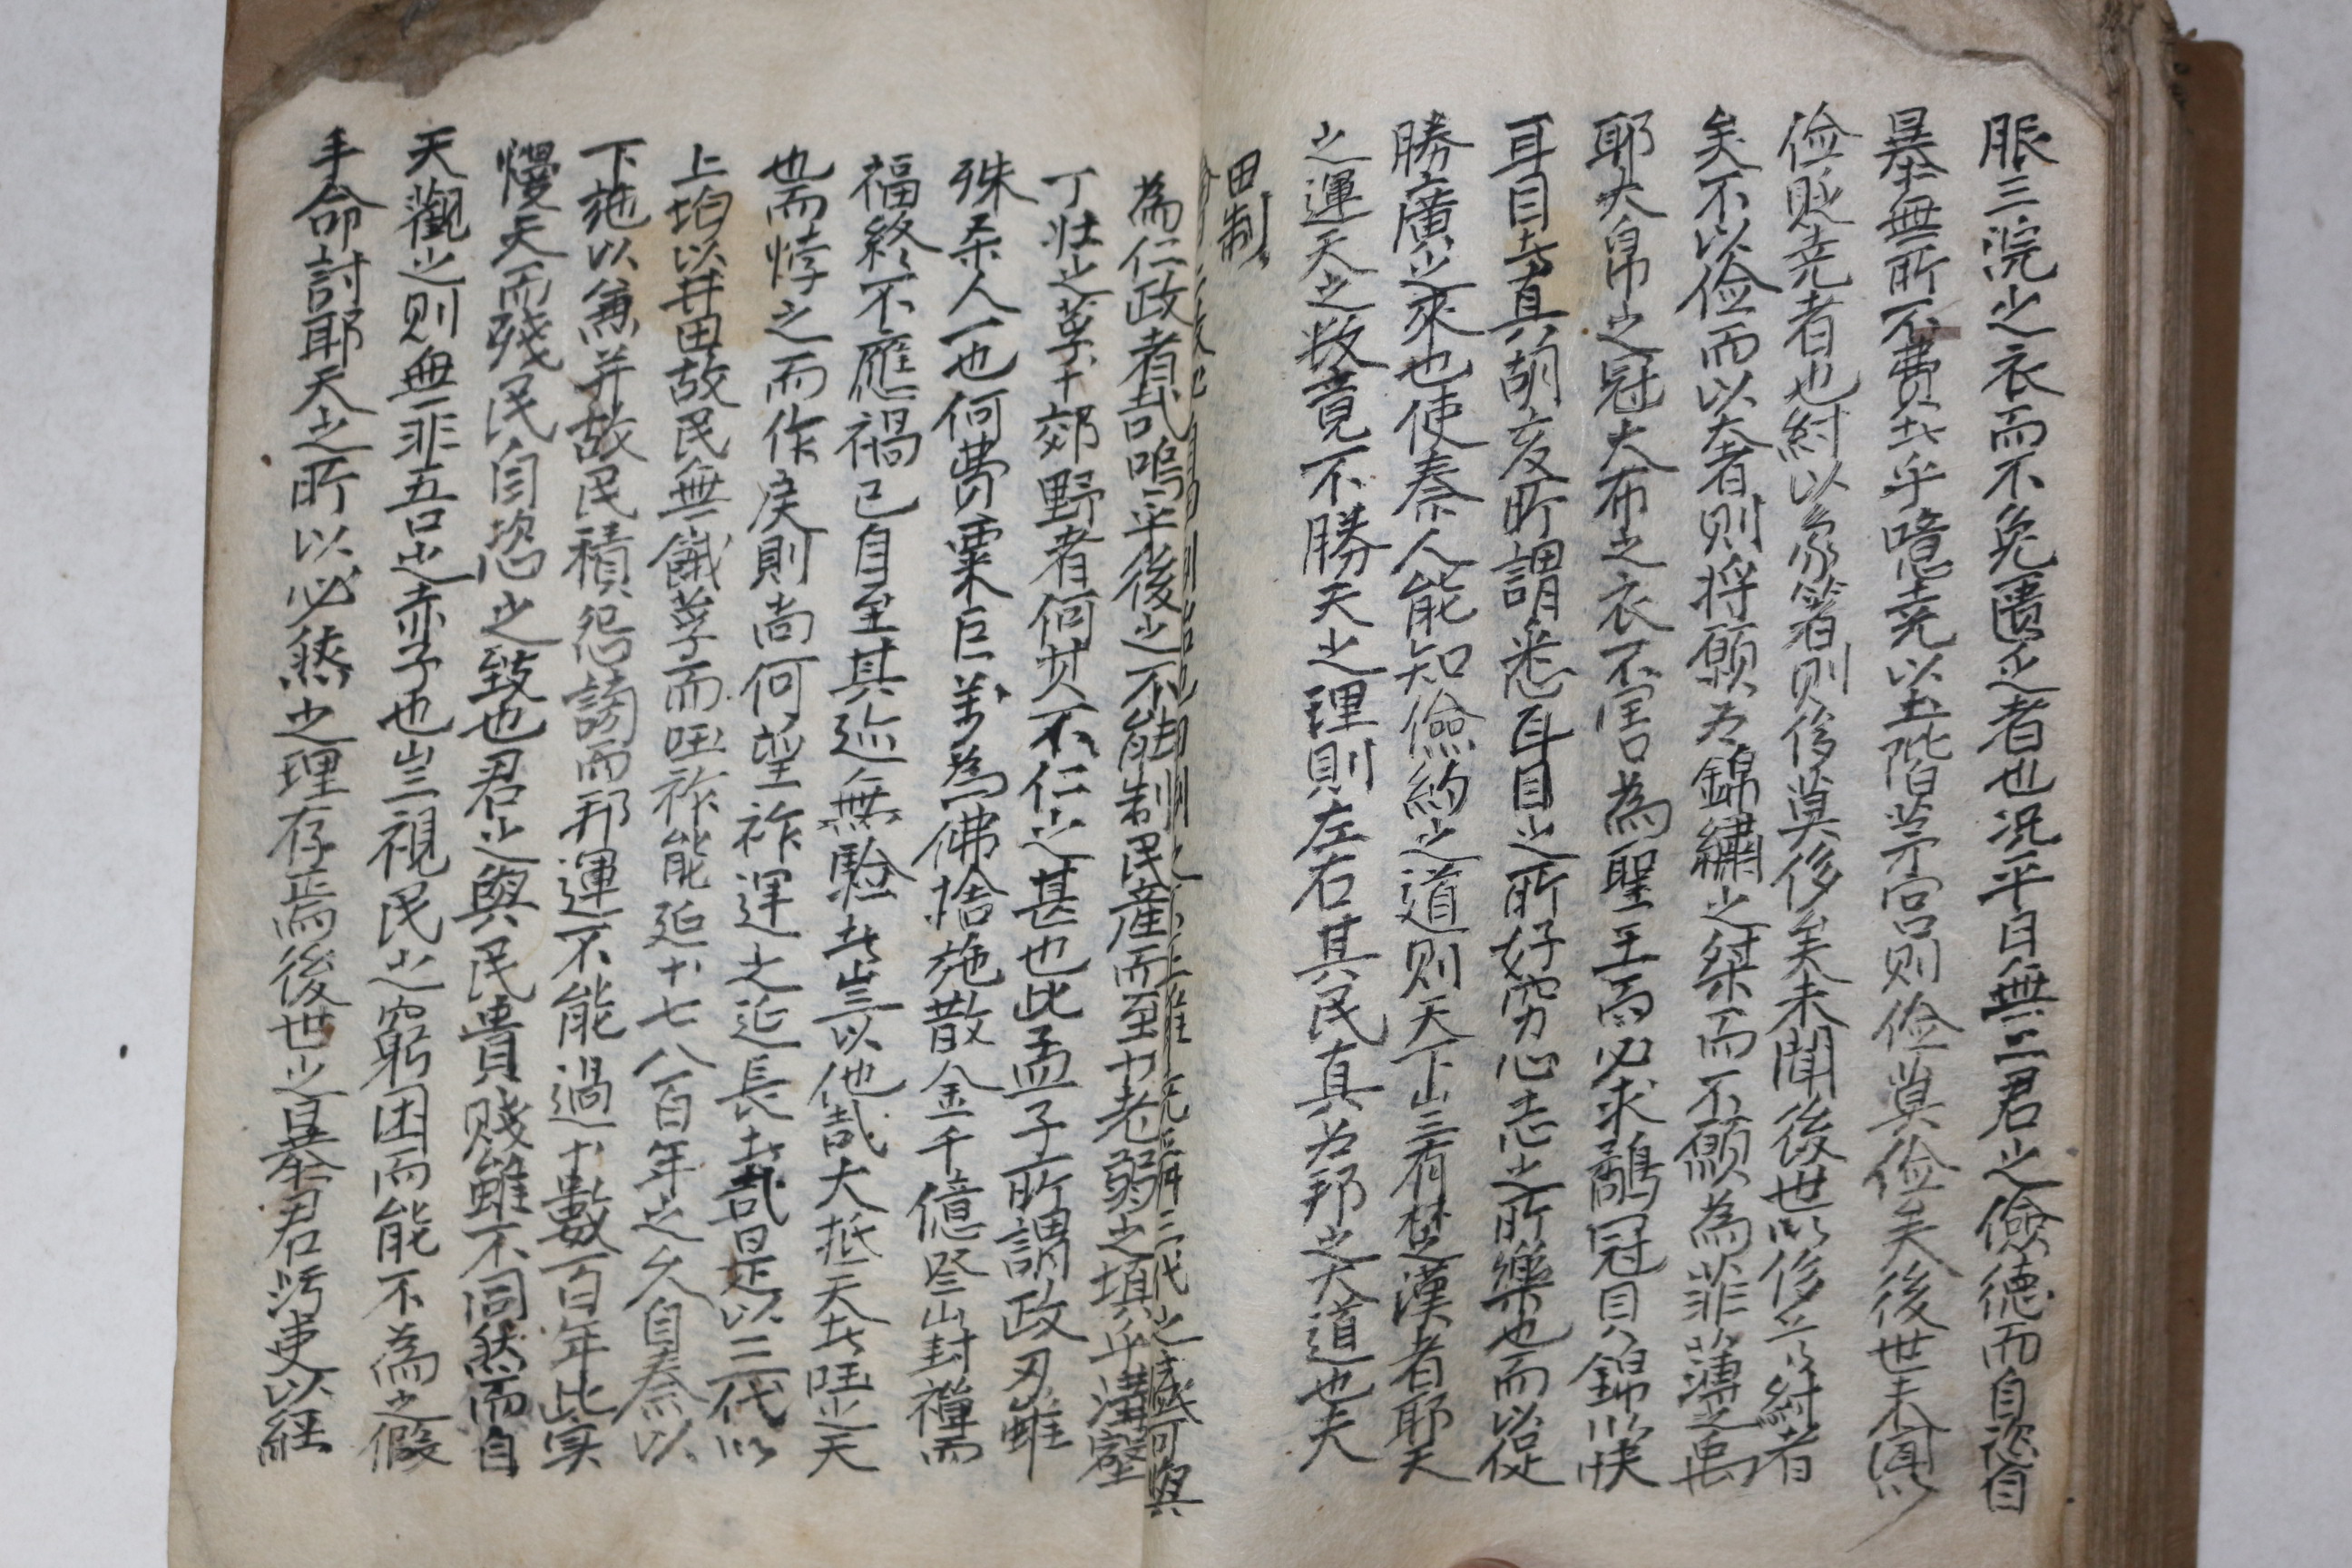 服三浣之衣而不免匱乏者也況乎自無三君之儉德而自恣自
暴無所不費者乎噫堯以土階茅宮則儉莫儉矣後世未聞以
儉貶堯者也紂以象箸則侈莫侈矣未聞後世以侈 紂者
矣不以儉而以奢者則將願為錦繡之桀而不願為菲薄之禹
耶大帛之冠大布之衣不害為聖王而必求鷸冠貝錦以快
耳目者真胡亥所謂悉耳目之所好窮心志之所樂也而以促
勝廣之來也使秦人能知儉約之道則天下豈有楚漢者耶天
之運天之數竟不勝天之理則左右其民真為邦之大道也夫
田制
三代之 可與
為仁政者哉嗚乎後之不能制民產而至于老弱之塡乎溝壑
丁壯之莩于郊野者何其不仁之甚也此孟子所謂政刃雖
殊杀人一也何費粟巨萬為佛捨施散金千億登山封禪而
福終不應禍已自至其迹無驗者豈以他哉大抵天者 之天
也而悖之而作戾則尚何望祚運之延長者哉是以三代以
上均以井田故民無餓莩而 祚能延于七八百年之久自秦以
下施以兼并故民積怨謗而邦運不能過于數百年此実
慢天而殘民自恣之致也君之與民貴賤雖不同然而自
天觀之則無非吾之赤子也豈視民之窮困而能不為之假
手命討耶天之所以必然之理存焉後世之暴君汚吏以經